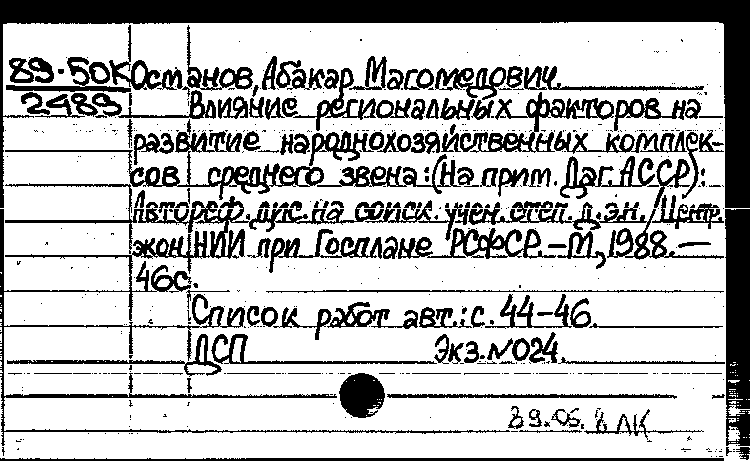 89-50К Османов, Абакар Магомедович.
2489 Влияние региональных факторов на
развитие народнохозяйственных комплек-
сов среднего звена: (На прим. Даг. АССР):
Автореф. дис. на соиск. учен. степ. д.э.н. / Центр.
экон. НИИ при Госплане РСФСР. - М., 1988. —
46с.
Список работ авт.: с. 44-46.
ДСП Экз. N024.
89.05.